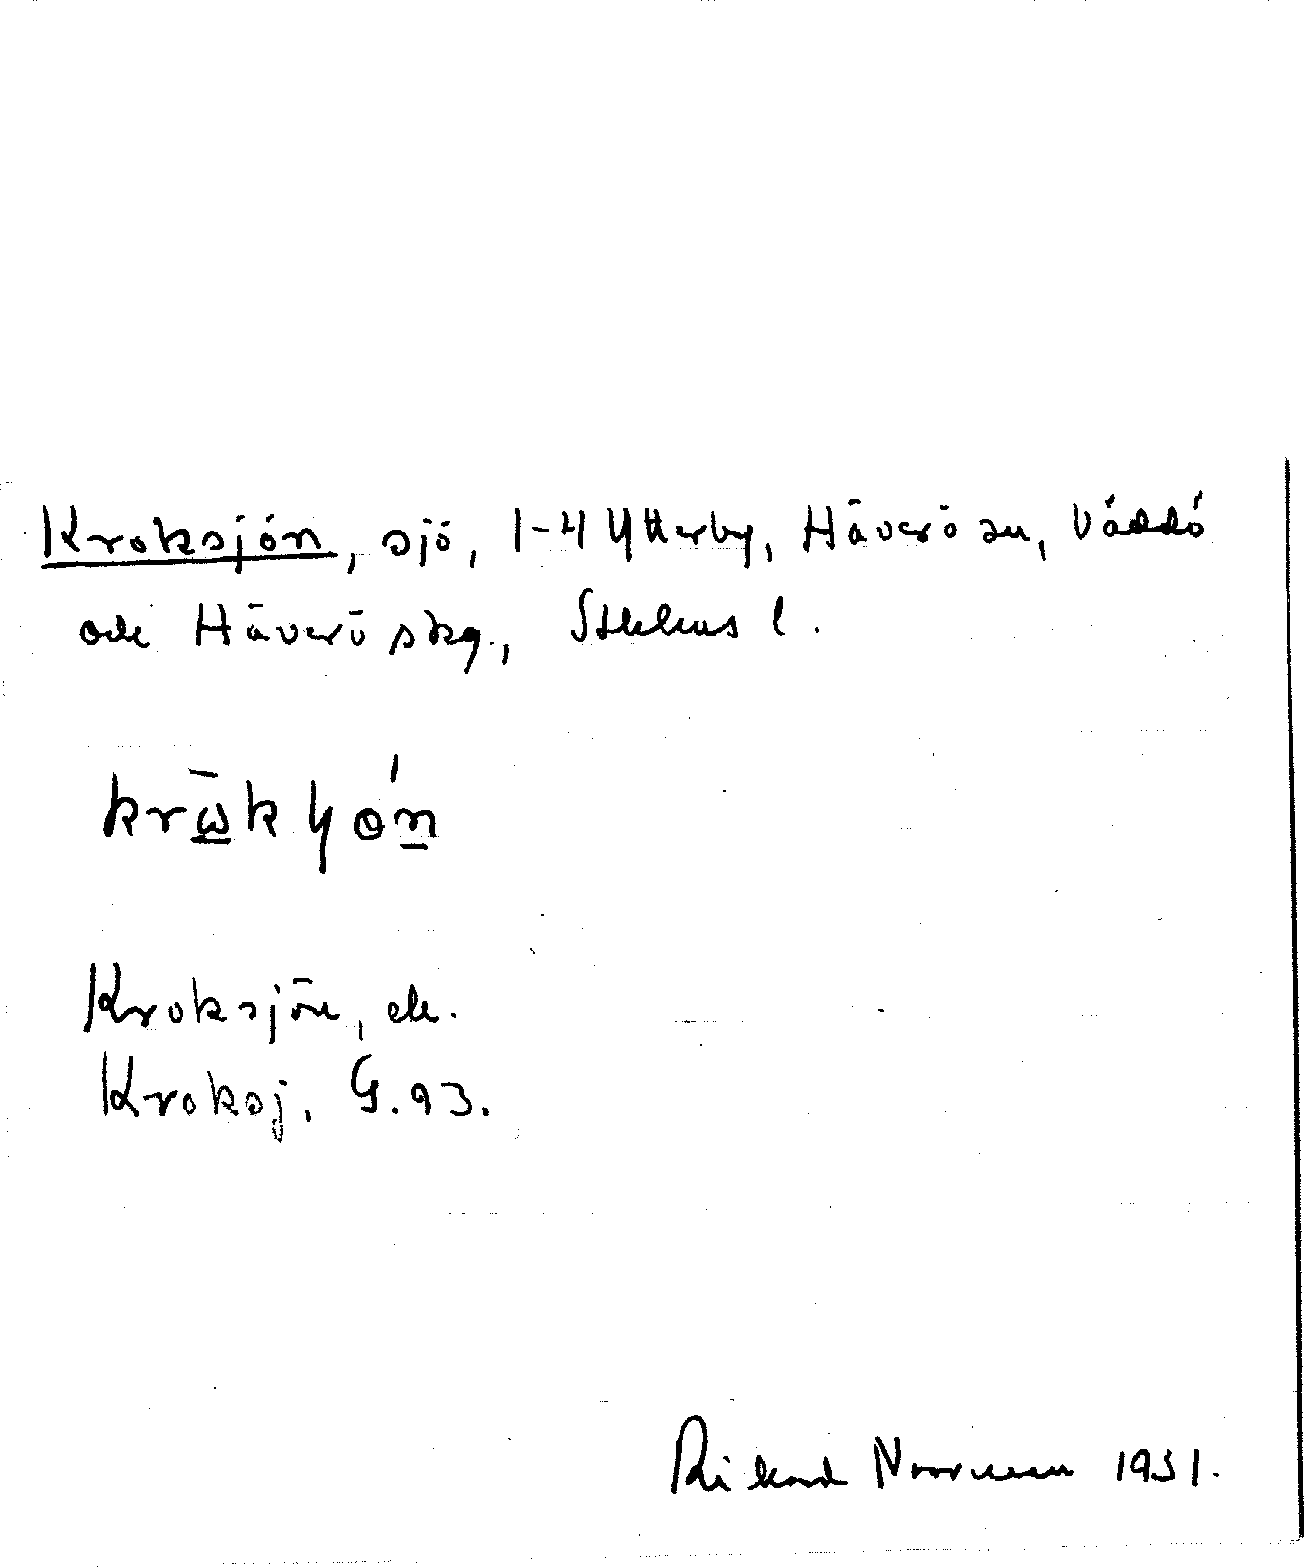 Kroksjön, sjö, 1-4 Ytterby, Häverö sn, Väddö
och Häverö skg., Sthlms l.
krω̄kɥөń
Kroksjön, ek.
Kroksj. G.93.
Rikard Norrman 1931.